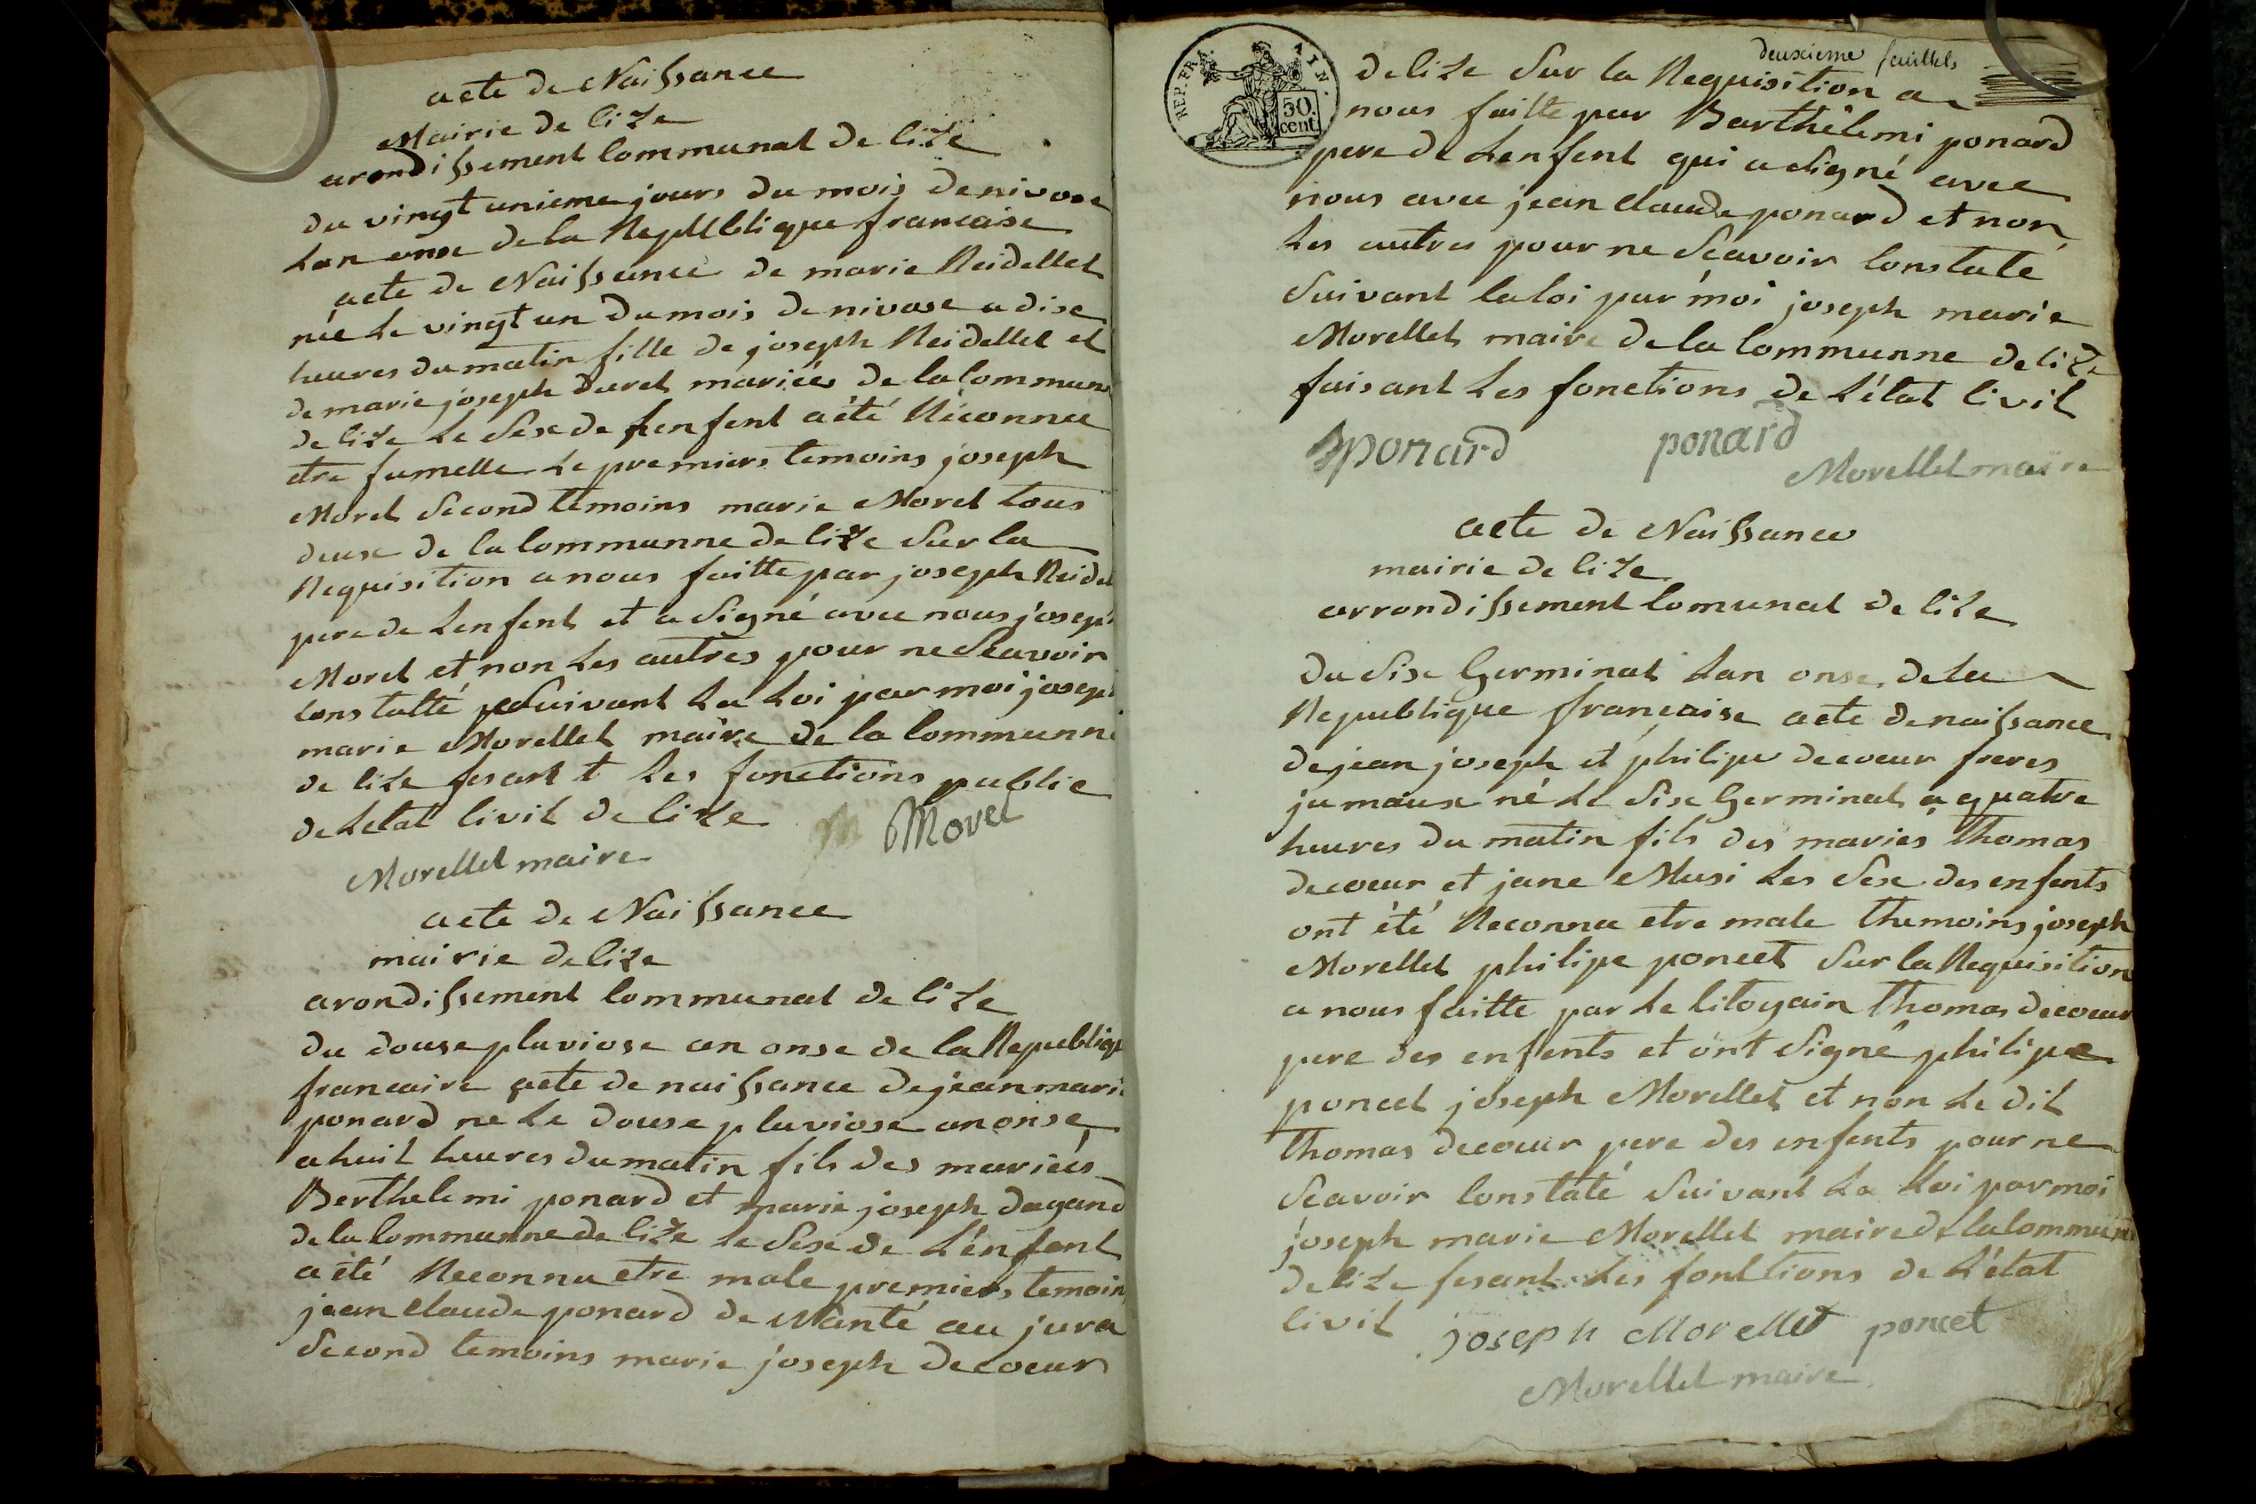 acte de Naissance
Mairie de lize
arondissement Communal de lize
du vingt unieme jours du mois de nivose
Lan onse de la Republique francaise
acte de Naissance de marie Reidellet
née Le vingt un du mois de nivose a dise
heures du matin fille de joseph Reidellet et
de marie joseph duret mariées de la Commun
de lize Le Sexe de Lenfent a été Reconnu
etre fumelle Le premiers temoins joseph
Morel Second temoins marie Morel tous
deux de la Communne de lize Sur la
Requisition a nous faitte par joseph Reidel
pere de Lenfent et a Signé avec nous joseph
Morel et non Les autres pour ne Scavoir
Constatté Suivant La Loi par moi joseph
marie Morellet maire de la Communne
de lize fesant Les fonctions public
de Letat Civil de lize
Morel
Morellet maire
acte de Naissance
mairie de lize
arondissement Communal de lize
du douse pluviose an onse de la Republiqu
francaise acte de naissance de jean mari
ponard ne Le douse pluviose an onse
a huit heures du matin fils des mariées
Berthelemi ponard et marie joseph dagand
de la Communne de lize Le Sexe de L'enfent
a été Reconnu etre male premiers temoins
jean Claude ponard de Nanté au jura
Second temoins marie joseph decoeur
deuxieme feuillet
REP. FRA. 50 cent.
de lize Sur la Requisition a
nous faitte par Barthélemi ponard
pere de Lenfent qui a Signé avec
nous avec jean Claude ponard et non
Les autres pour ne Scavoir Constate
Suivant la loi par moi joseph marie
Morellet maire de la Communne de lize
faisant Les fonctions de L'état Civil
Bponard ponard
Morellet maire
acte de Naissance
mairie de lize
arrondissement Comunal de lize
du Six Germinal Lan onse de La
Republique française acte de naissance
de jean joseph et philipe decoeur freres
jumaux né Le Six Germinal a quatre
heures du matin fils des mariés Thomas
decoeur et jane Musi Les Sexe des enfents
ont été Reconnu etre male themoins joseph
Morellet philipe poncet Sur la Requisition
a nous faitte par Le Citoyain Thomas decoeur
pere des enfents et ont Signé philipe
poncet joseph Morellet et non Le dit
Thomas decoeur pere des enfents pour ne
Scavoir Constaté Suivant La Loi par moi
joseph marie Morellet maire de la Commune
de lize fesant Les fonctions de L'état
Civil
joseph Morellet poncet
Morellet maire